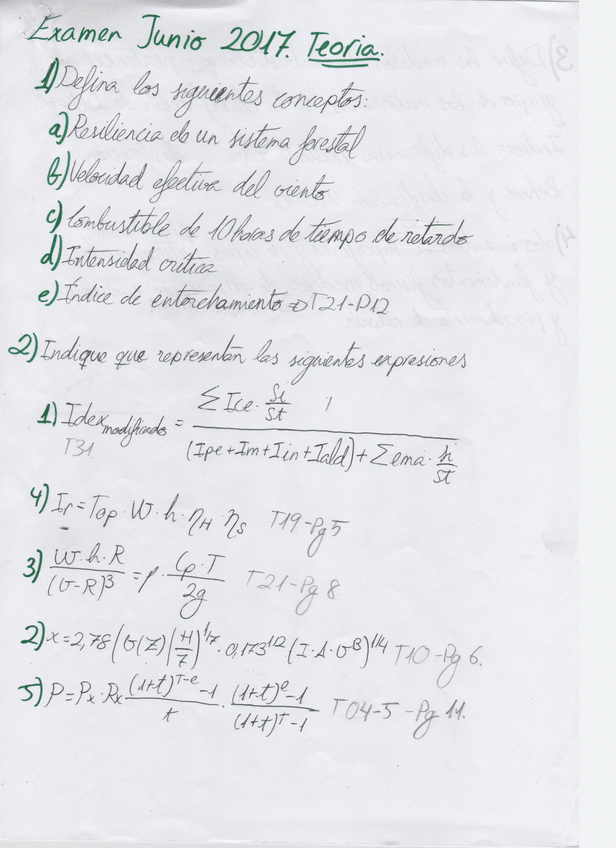 Examen Junio 2017. Teoria.
1) Defina los siguientes conceptos:
a) Resiliencia de un sistema forestal
b) Velocidad efectiva del viento
c) Combustible de 10 horas de tiempo de retardo
d) Intensidad crítica
e) Índice de entorchamiento => T21-P12
2) Indique que representan las siguientes expresiones
1) Idex modificado = ∑ Ice · Si/St / ((Ipe + Im + Iin + Iald) + ∑ ema · si/st)
T31
4) Ir = Top · W · h · ηH · ηs T19-Pg 5
3) W·h·R/(U-R)³ = ρ · Cp·T/2g T21-Pg 8
2) x = 2,78 (U(Z) (H/7)^1/7 · 0,173^1/2 (I·A·U^B)^1/4 T10-Pg 6.
5) P = Px · Rx (1+t)^T-e -1 / t · (1+t)^e -1 / (1+t)^T -1 T04-5 - Pg 11.